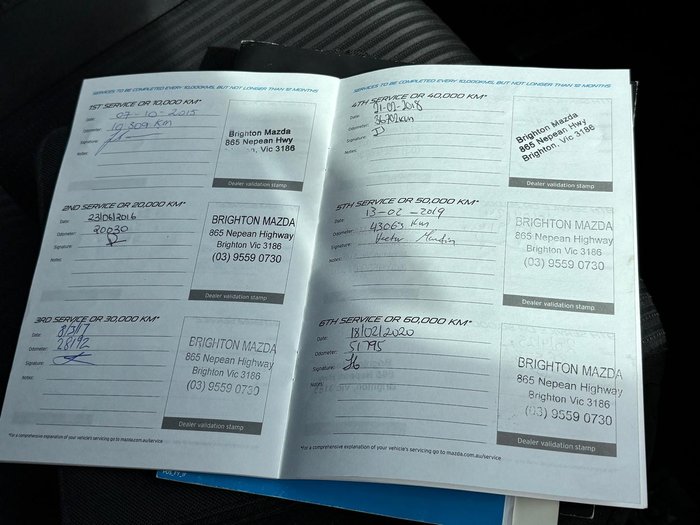 SERVICES TO BE COMPLETED EVERY 10,000KMS, BUT NOT LONGER THAN 12 MONTHS
1ST SERVICE OR 10,000 KM*
Date: 07-10-2015
Odometer: 10 309 Km
Signature:
Notes:
Brighton Mazda
865 Nepean Hwy
Vic 3186
Dealer validation stamp
2ND SERVICE OR 20,000 KM*
Date: 23/06/2016
Odometer: 20030
Signature:
Notes:
BRIGHTON MAZDA
865 Nepean Highway
Brighton Vic 3186
(03) 9559 0730
Dealer validation stamp
3RD SERVICE OR 30,000 KM*
Date: 8/3/17
Odometer: 28192
Signature:
Notes:
BRIGHTON MAZDA
865 Nepean Highway
Brighton Vic 3186
(03) 9559 0730
Dealer validation stamp
*For a comprehensive explanation of your vehicle's servicing go to mazda.com.au/service
SERVICES TO BE COMPLETED EVERY 10,000KMS, BUT NOT LONGER THAN 12 MONTHS
4TH SERVICE OR 40,000 KM*
Date: 01-02-2018
Odometer: 36702km
Signature:
Notes:
Brighton Mazda
865 Nepean Hwy
Brighton, Vic 3186
Dealer validation stamp
5TH SERVICE OR 50,000 KM*
Date: 13-02-2019
Odometer: 43063 Km
Signature:
Notes:
BRIGHTON MAZDA
865 Nepean Highway
Brighton Vic 3186
(03) 9559 0730
Dealer validation stamp
6TH SERVICE OR 60,000 KM*
Date: 18/02/2020
Odometer: 51795
Signature:
Notes:
BRIGHTON MAZDA
865 Nepean Highway
Brighton Vic 3186
(03) 9559 0730
Dealer validation stamp
*For a comprehensive explanation of your vehicle's servicing go to mazda.com.au/service